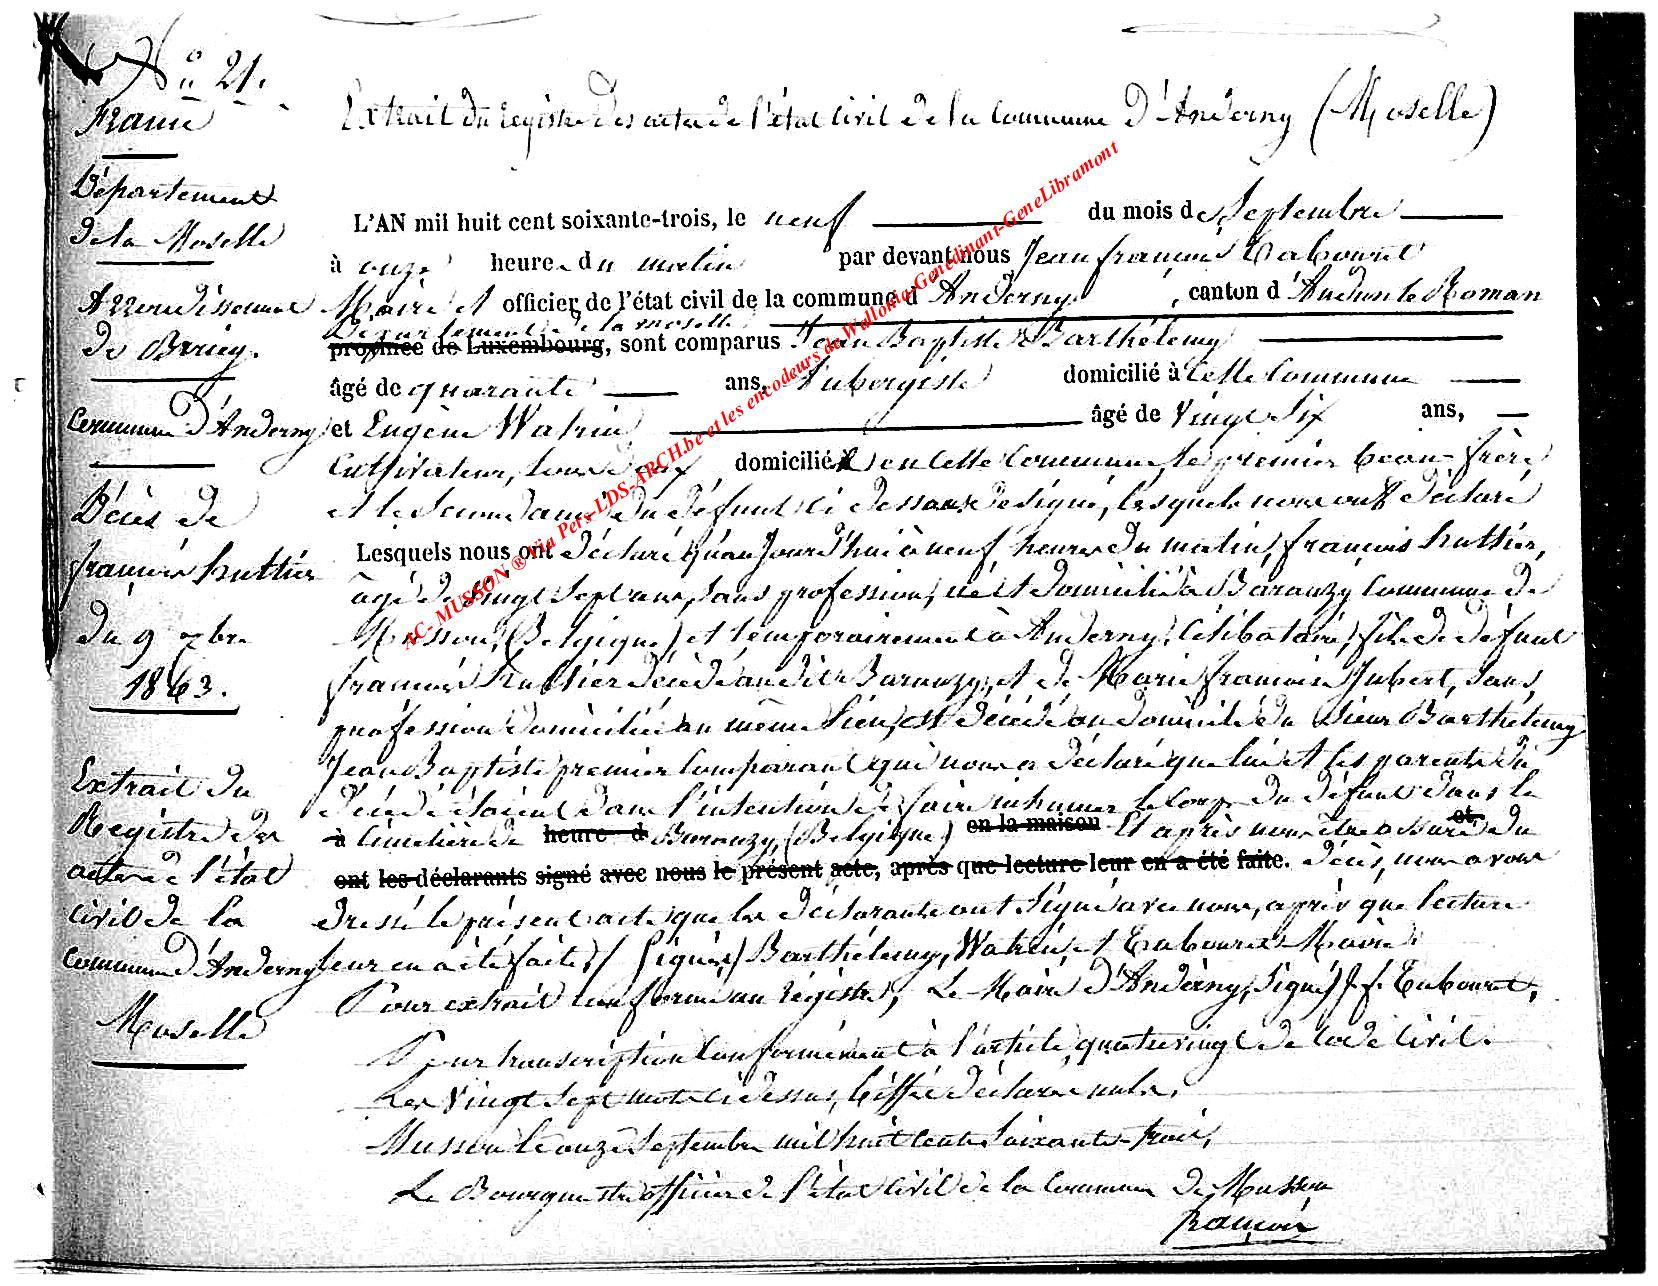 N° 21.
France
Département
de la Moselle
Arrondissement
de Briey.
Commune d'Anderny
Décès de
françois huttier
du 9 7bre
1863.
Extrait du
Registre des
actes de l'état
civil de la
commune d'Anderny
Moselle
Extrait du registre des actes de l'état civil de la commune d'Anderny (Moselle)
L'AN mil huit cent soixante-trois, le neuf du mois de Septembre
à onze heures du matin par devant nous Jean françois Tabouret
Maire et officier de l'état civil de la commune d'Anderny, canton d'Audun le Roman
Département de la moselle,
province de Luxembourg, sont comparus Jean Baptiste Barthélemy
âgé de quarante ans, aubergiste domicilié à cette commune
et Eugène Watrin âgé de vingt six ans,
cultivateur, tous deux domiciliés en cette commune, le premier beau-frère
et le second ami du défunt ci dessous désigné, lesquels nous ont déclaré
Lesquels nous ont déclaré qu'aujourd'hui à neuf heures du matin, françois huttier,
âgé de vingt sept ans, sans profession, né et domicilié à Baranzy commune de
Musson, (Belgique) et temporairement à Anderny, célibataire, fils de défunt
françois huttier décédé au dit Baranzy, et de Marie françoise Jubert, sans
profession domiciliée au même lieu, est décédé au domicile du sieur Barthélemy
Jean Baptiste premier comparant qui nous a déclaré que lui et les parents du
décédé étaient dans l'intention de faire inhumer le corps du défunt dans le
à cimetière de heure d Baranzy, (Belgique) en la maison Et après nous être assuré et du
ont les déclarants signé avec nous le présent acte, après que lecture leur en a été faite. décès, nous avons
dressé le présent acte que les déclarants ont signé avec nous, après que lecture
leur en a été faite, / Signés) Barthélemy, Watrin, et Tabouret Maire.
Pour extrait conforme au régistre, Le Maire d'Anderny, Signé) J. f. Tabouret,
Pour transcription conformément à l'article quatrevingt du code civil.
Les vingt sept mots ci dessus, biffés déclarés nuls,
Musson le onze septembre mil huit cent soixante-trois,
Le Bourgmestre officier de l'état civil de la commune de Musson
AC- MUSSON ® via Pers-LDS-ARCH.be et les encodeurs de Wallonia-Genedinant-GeneLibramont